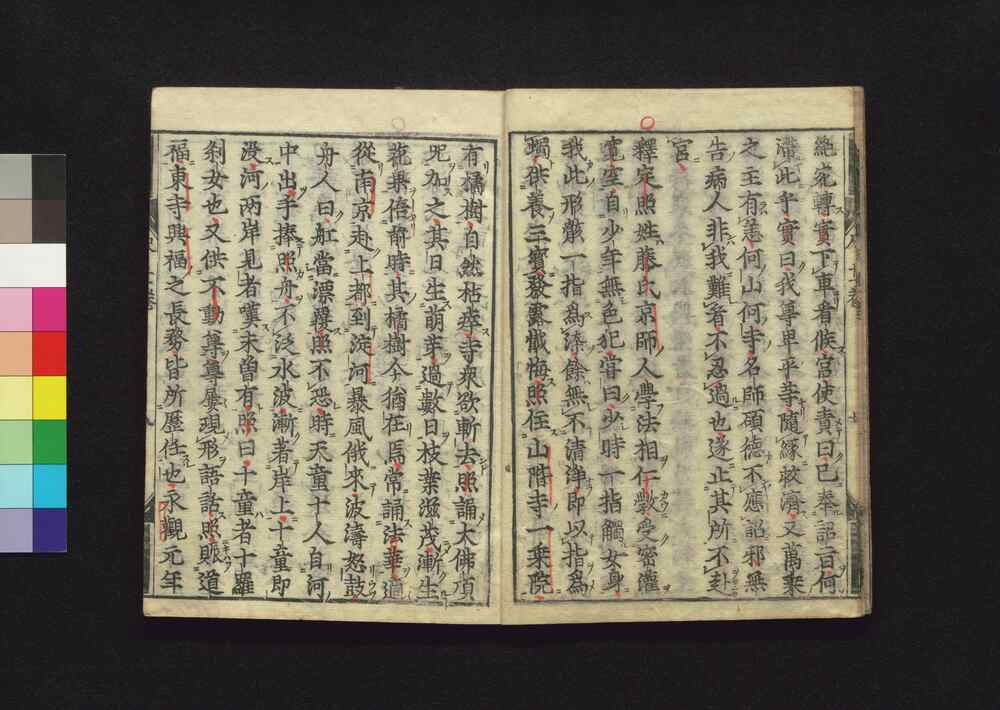 絶死轉實下車看候宮使責曰已奉詔旨何
滯此乎實曰我尊卑平等隨縁救濟又萬乘
之主有恙何山何寺名師碩德不應詔邪無
告病人非我難者不忍過也遂止其所不赴
宮
釋定照姓藤氏京師人學法相仁斅受密灌
寛空自少年無色犯甞曰少時一指觸女身
我此形骸一指爲漆餘無不清淨即以指爲
燭供養三寶發露懺悔照住山階寺一乗院
有橘樹自然枯瘁寺衆欲斬去照誦大佛頂
咒加之其日生萌芽過數日枝葉滋茂漸生
花菓倍前時其橘樹今猶在焉常誦法華道
從南京赴上都到淀河暴風俄來波濤怒鼓
舟人曰舡當漂覆照不恐時天童十人自河
中出手捧照舟不泛水波漸著岸上十童即
没河兩岸見者嘆未曽有照曰十童者十羅
刹女也又供不動尊尊屢現形語話照賑道
福東寺興福之長務皆所歴任也永觀元年